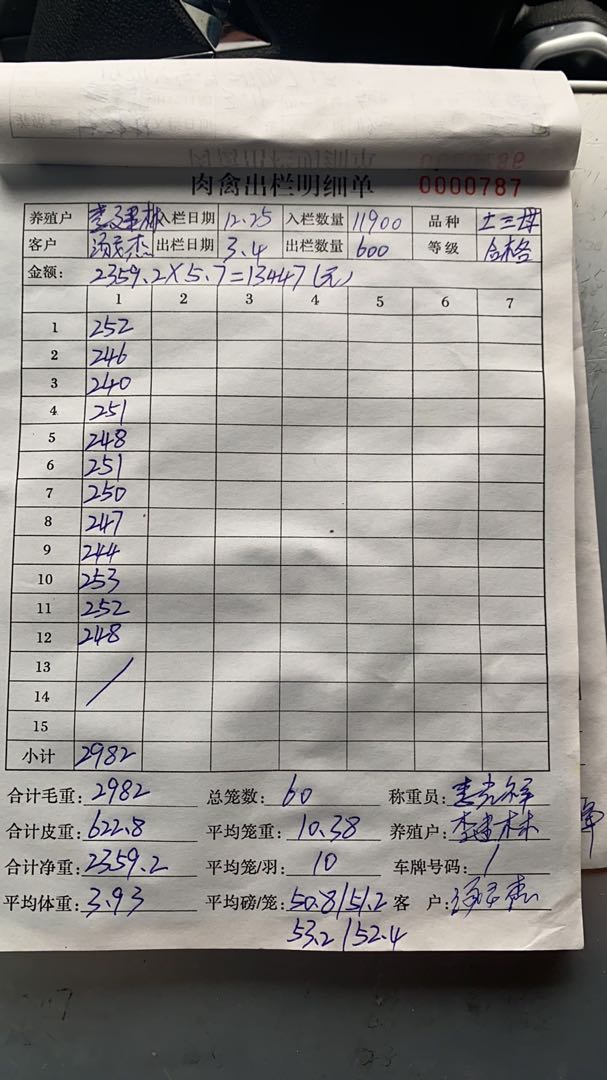 肉禽出栏明细单 0000787
养殖户 李建林 入栏日期 12.25 入栏数量 11900 品种 土三母
客户 出栏日期 3.4 出栏数量 600 等级 合格
金额: 2359.2×5.7=13447(元)
1 2 3 4 5 6 7
1 252
2 246
3 240
4 251
5 248
6 251
7 250
8 247
9 244
10 253
11 252
12 248
13
14 /
15
小计 2982
合计毛重: 2982 总笼数: 60 称重员:
合计皮重: 622.8 平均笼重: 10.38 养殖户: 李建林
合计净重: 2359.2 平均笼/羽: 10 车牌号码: /
平均体重: 3.93 平均磅/笼: 50.8/51.2 客 户:
53.2/52.4